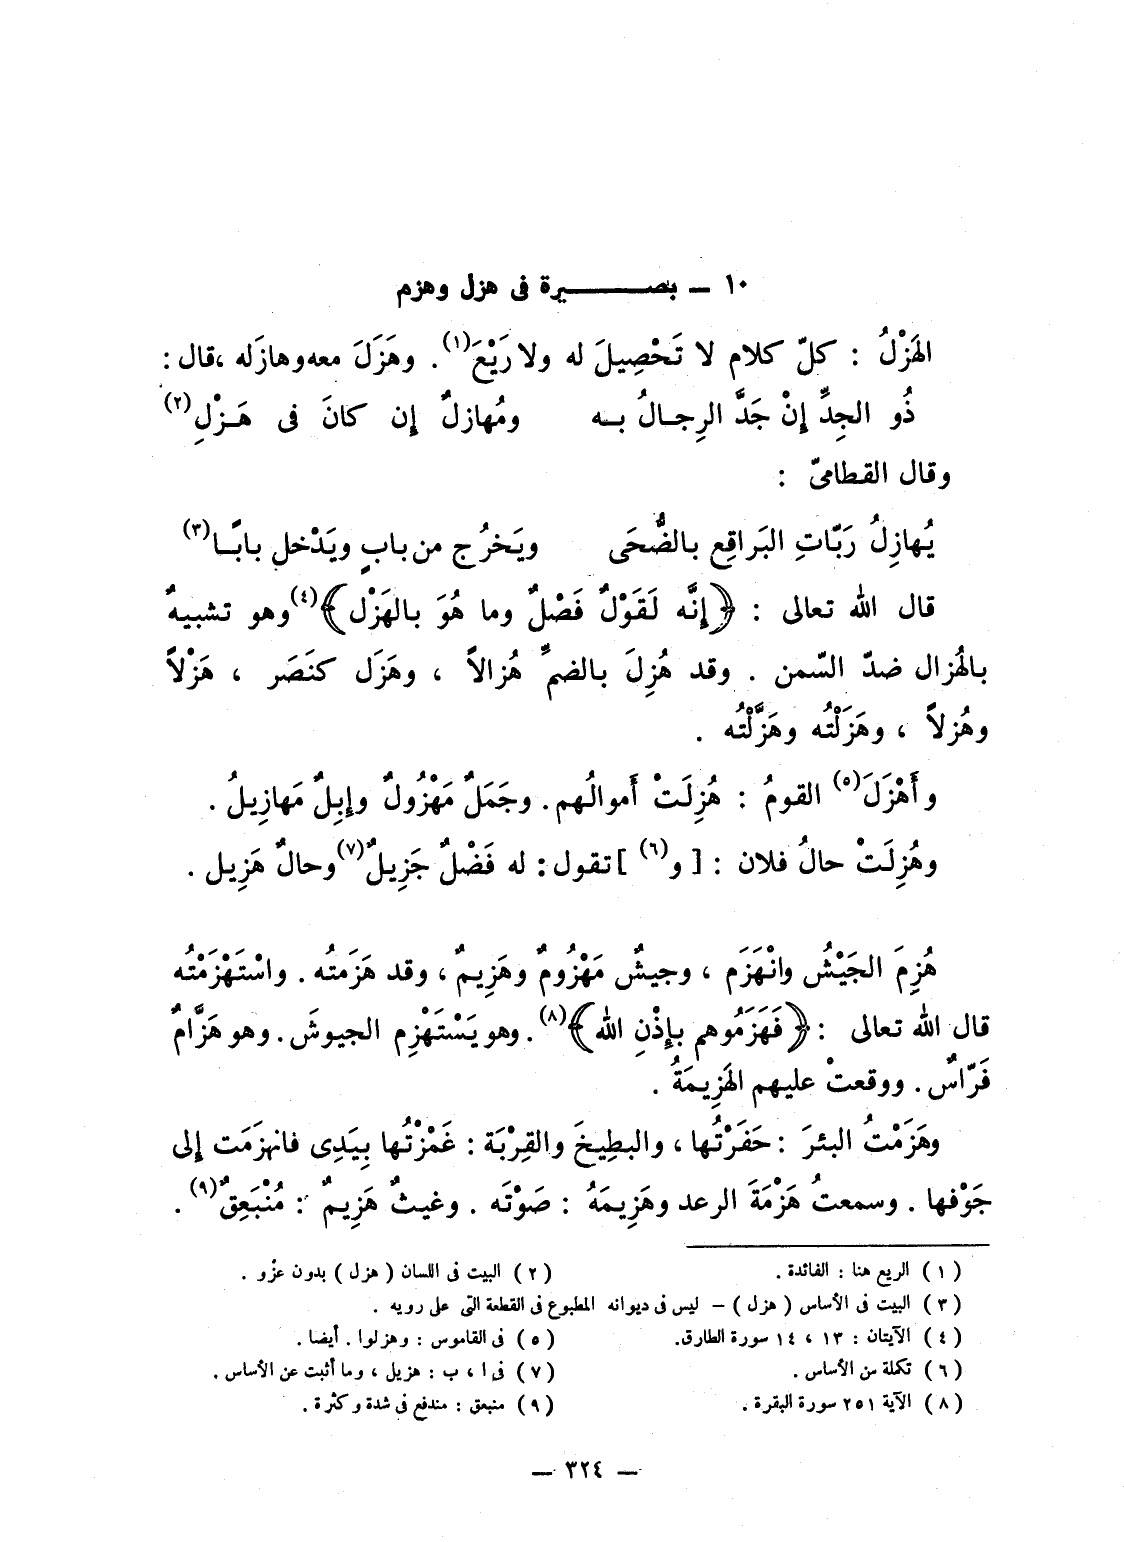 ١٠ ــ بصـــــــيرة فى هزل وهزم
الهَزْلُ : كلّ كلام لا تَحْصِيلَ له ولا رَيْعَ(١) . وهَزَلَ معه وهازَله ، قال :
ذُو الجِدِّ إنْ جَدَّ الرِجـالُ بـه ومُهازلٌ إن كانَ فى هَـزْلِ(٢)
وقال القطامىّ :
يُهازِلُ رَبّاتِ البَراقِع بالضُّحَى ويَخرُج من بابٍ ويَدْخل بابًـا(٣)
قال الله تعالى : ﴿إِنَّه لَقَوْلٌ فَصْلٌ وما هُوَ بالهَزْل﴾(٤) وهو تشبيهٌ
بالهُزال ضدّ السّمن . وقد هُزِلَ بالضمِّ هُزالاً ، وهَزَل كنَصَر ، هَزْلاً
وهُزلاً ، وهَزَلْتُه وهَزَّلْتُه .
وأَهْزَلَ(٥) القومُ : هُزِلَتْ أَموالُهم . وجَمَلٌ مَهْزُولٌ وإبِلٌ مَهازِيلُ .
وهُزِلَتْ حالُ فلان : [ و(٦) ] تقول : له فَضْلٌ جَزِيلٌ(٧) وحالٌ هَزِيل .
هُزِمَ الجَيْشُ وانْهَزَم ، وجيشٌ مَهْزُومٌ وهَزِيمٌ ، وقد هَزَمتُه . واسْتَهْزَمْتُه
قال الله تعالى : ﴿فَهَزَمُوهم بإِذْنِ الله﴾(٨) . وهو يَسْتَهْزِم الجيوشَ . وهو هَزَّامٌ
فَرّاسٌ . ووقعتْ عليهم الهَزِيمَةُ .
وهَزَمْتُ البئرَ : حَفَرْتُها ، والبطِيخَ والقِرْبَة : غَمْزْتُها بِيَدِى فانهزَمَت إلى
جَوْفها . وسمعتُ هَزْمَةَ الرعد وهَزِيمَهُ : صَوْتَه . وغيثٌ هَزِيمٌ : مُنْبَعِقٌ(٩) .
( ١ ) الريع هنا : الفائدة . ( ٢ ) البيت فى اللسان ( هزل ) بدون عزْو .
( ٣ ) البيت فى الأساس ( هزل ) – ليس فى ديوانه المطبوع فى القطعة التى على رويه .
( ٤ ) الآيتان : ١٣ ، ١٤ سورة الطارق. ( ٥ ) فى القاموس : وهزلوا . أيضا .
( ٦ ) تكملة من الأساس . ( ٧ ) فى ا ، ب : هزيل ، وما أثبت عن الأساس .
( ٨ ) الآية ٢٥١ سورة البقرة . ( ٩ ) منبعق : مندفع فى شدة وكثرة .
— ٣٢٤ —